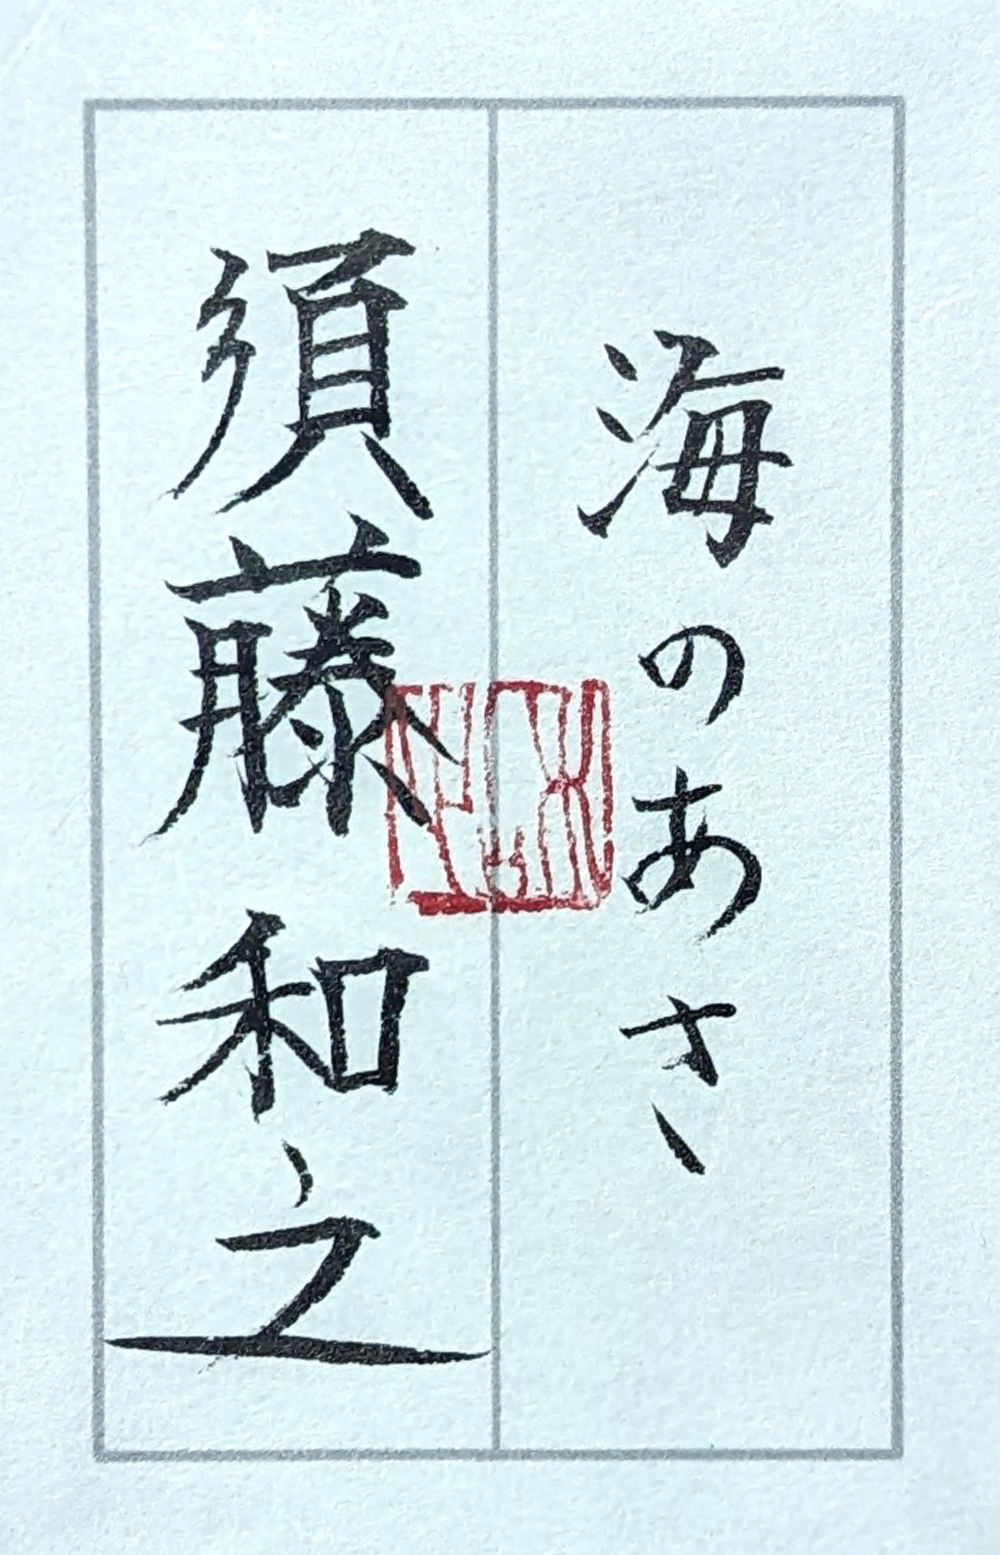 海のあさ
須藤和之